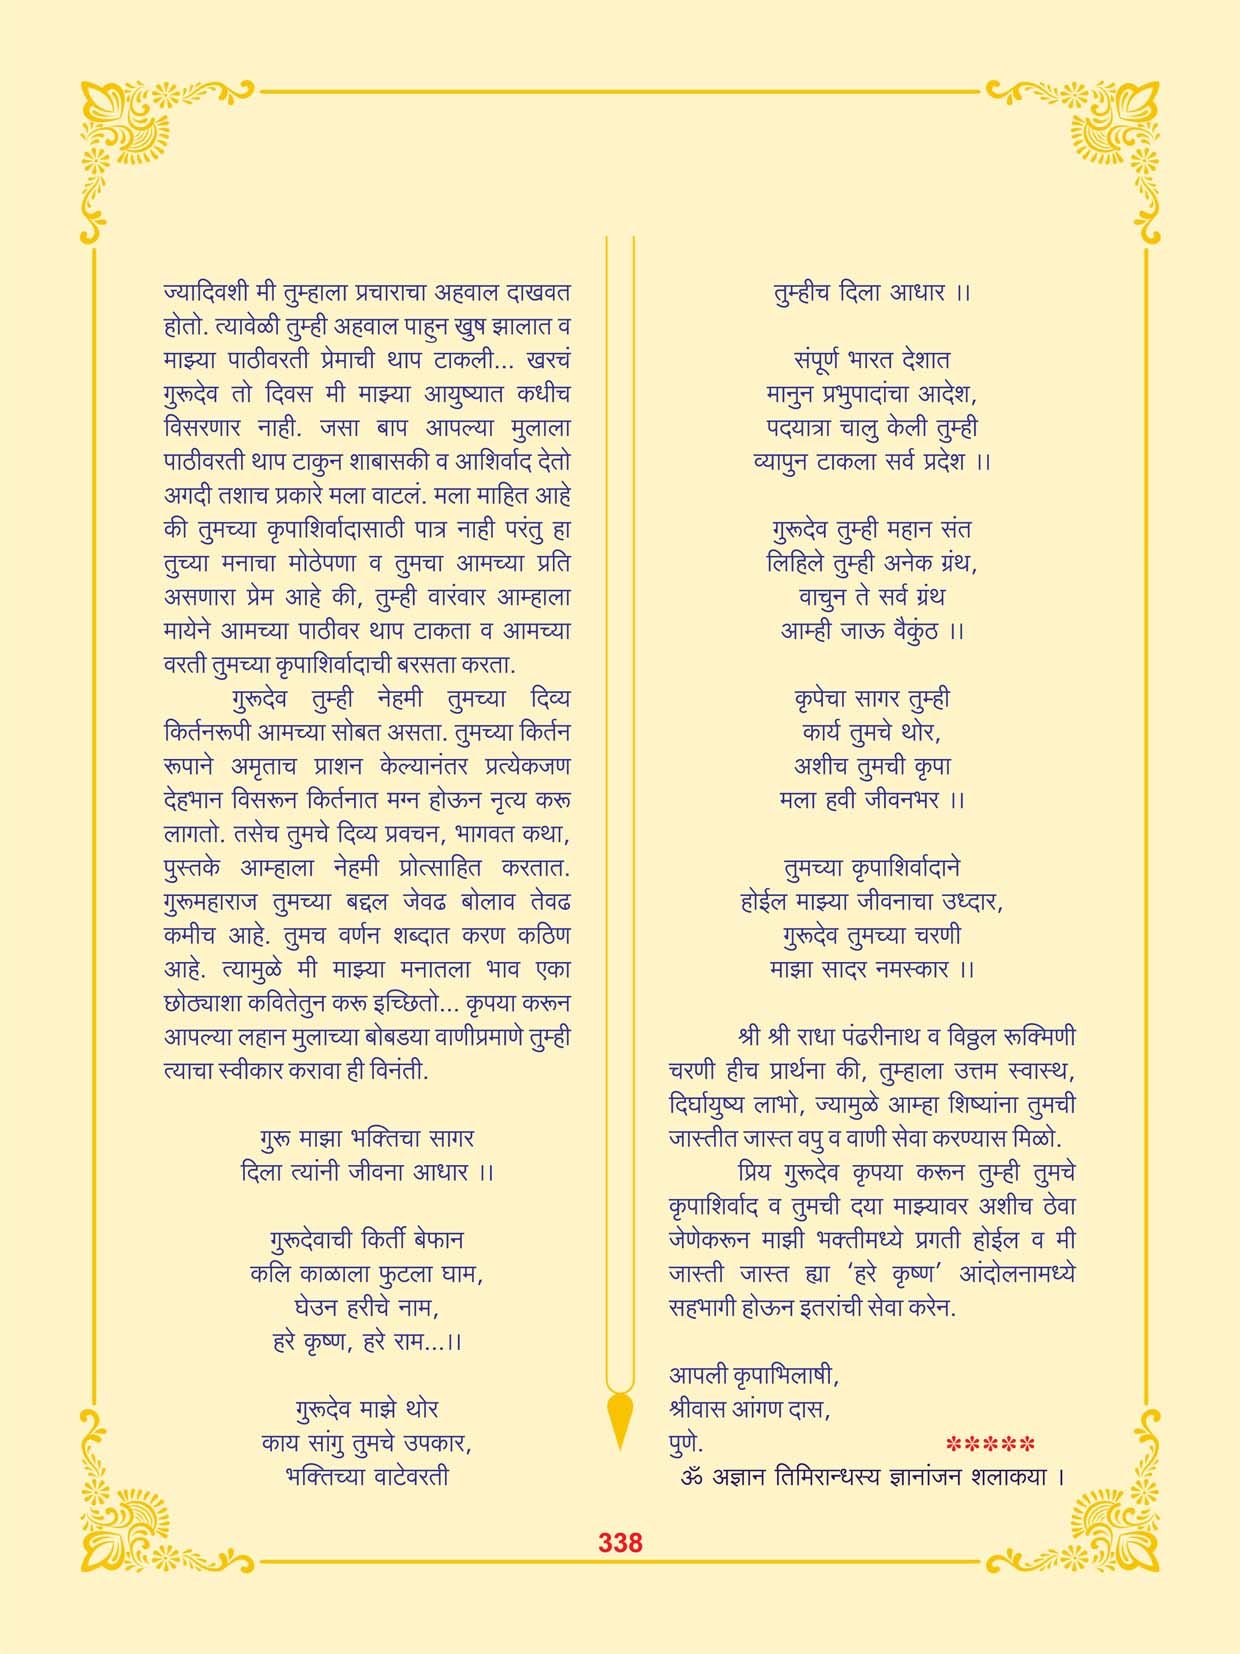 ज्यादिवशी मी तुम्हाला प्रचाराचा अहवाल दाखवत
होतो. त्यावेळी तुम्ही अहवाल पाहुन खुष झालात व
माझ्या पाठीवरती प्रेमाची थाप टाकली... खरचं
गुरूदेव तो दिवस मी माझ्या आयुष्यात कधीच
विसरणार नाही. जसा बाप आपल्या मुलाला
पाठीवरती थाप टाकुन शाबासकी व आशिर्वाद देतो
अगदी तशाच प्रकारे मला वाटलं. मला माहित आहे
की तुमच्या कृपाशिर्वादासाठी पात्र नाही परंतु हा
तुच्या मनाचा मोठेपणा व तुमचा आमच्या प्रति
असणारा प्रेम आहे की, तुम्ही वारंवार आम्हाला
मायेने आमच्या पाठीवर थाप टाकता व आमच्या
वरती तुमच्या कृपाशिर्वादाची बरसता करता.
गुरूदेव तुम्ही नेहमी तुमच्या दिव्य
किर्तनरूपी आमच्या सोबत असता. तुमच्या किर्तन
रूपाने अमृताच प्राशन केल्यानंतर प्रत्येकजण
देहभान विसरून किर्तनात मग्न होऊन नृत्य करू
लागतो. तसेच तुमचे दिव्य प्रवचन, भागवत कथा,
पुस्तके आम्हाला नेहमी प्रोत्साहित करतात.
गुरूमहाराज तुमच्या बद्दल जेवढ बोलाव तेवढ
कमीच आहे. तुमच वर्णन शब्दात करण कठिण
आहे. त्यामुळे मी माझ्या मनातला भाव एका
छोठ्याशा कवितेतुन करू इच्छितो... कृपया करून
आपल्या लहान मुलाच्या बोबडया वाणीप्रमाणे तुम्ही
त्याचा स्वीकार करावा ही विनंती.
गुरू माझा भक्तिचा सागर
दिला त्यांनी जीवना आधार ।।
गुरूदेवाची किर्ती बेफान
कलि काळाला फुटला घाम,
घेउन हरीचे नाम,
हरे कृष्ण, हरे राम...।।
गुरूदेव माझे थोर
काय सांगु तुमचे उपकार,
भक्तिच्या वाटेवरती
तुम्हीच दिला आधार ।।
संपूर्ण भारत देशात
मानुन प्रभुपादांचा आदेश,
पदयात्रा चालु केली तुम्ही
व्यापुन टाकला सर्व प्रदेश ।।
गुरूदेव तुम्ही महान संत
लिहिले तुम्ही अनेक ग्रंथ,
वाचुन ते सर्व ग्रंथ
आम्ही जाऊ वैकुंठ ।।
कृपेचा सागर तुम्ही
कार्य तुमचे थोर,
अशीच तुमची कृपा
मला हवी जीवनभर ।।
तुमच्या कृपाशिर्वादाने
होईल माझ्या जीवनाचा उध्दार,
गुरूदेव तुमच्या चरणी
माझा सादर नमस्कार ।।
श्री श्री राधा पंढरीनाथ व विठ्ठल रूक्मिणी
चरणी हीच प्रार्थना की, तुम्हाला उत्तम स्वास्थ,
दिर्घायुष्य लाभो, ज्यामुळे आम्हा शिष्यांना तुमची
जास्तीत जास्त वपु व वाणी सेवा करण्यास मिळो.
प्रिय गुरूदेव कृपया करून तुम्ही तुमचे
कृपाशिर्वाद व तुमची दया माझ्यावर अशीच ठेवा
जेणेकरून माझी भक्तीमध्ये प्रगती होईल व मी
जास्ती जास्त ह्या ‘हरे कृष्ण’ आंदोलनामध्ये
सहभागी होऊन इतरांची सेवा करेन.
आपली कृपाभिलाषी,
श्रीवास आंगण दास,
पुणे. *****
ॐ अज्ञान तिमिरान्धस्य ज्ञानांजन शलाकया ।
338